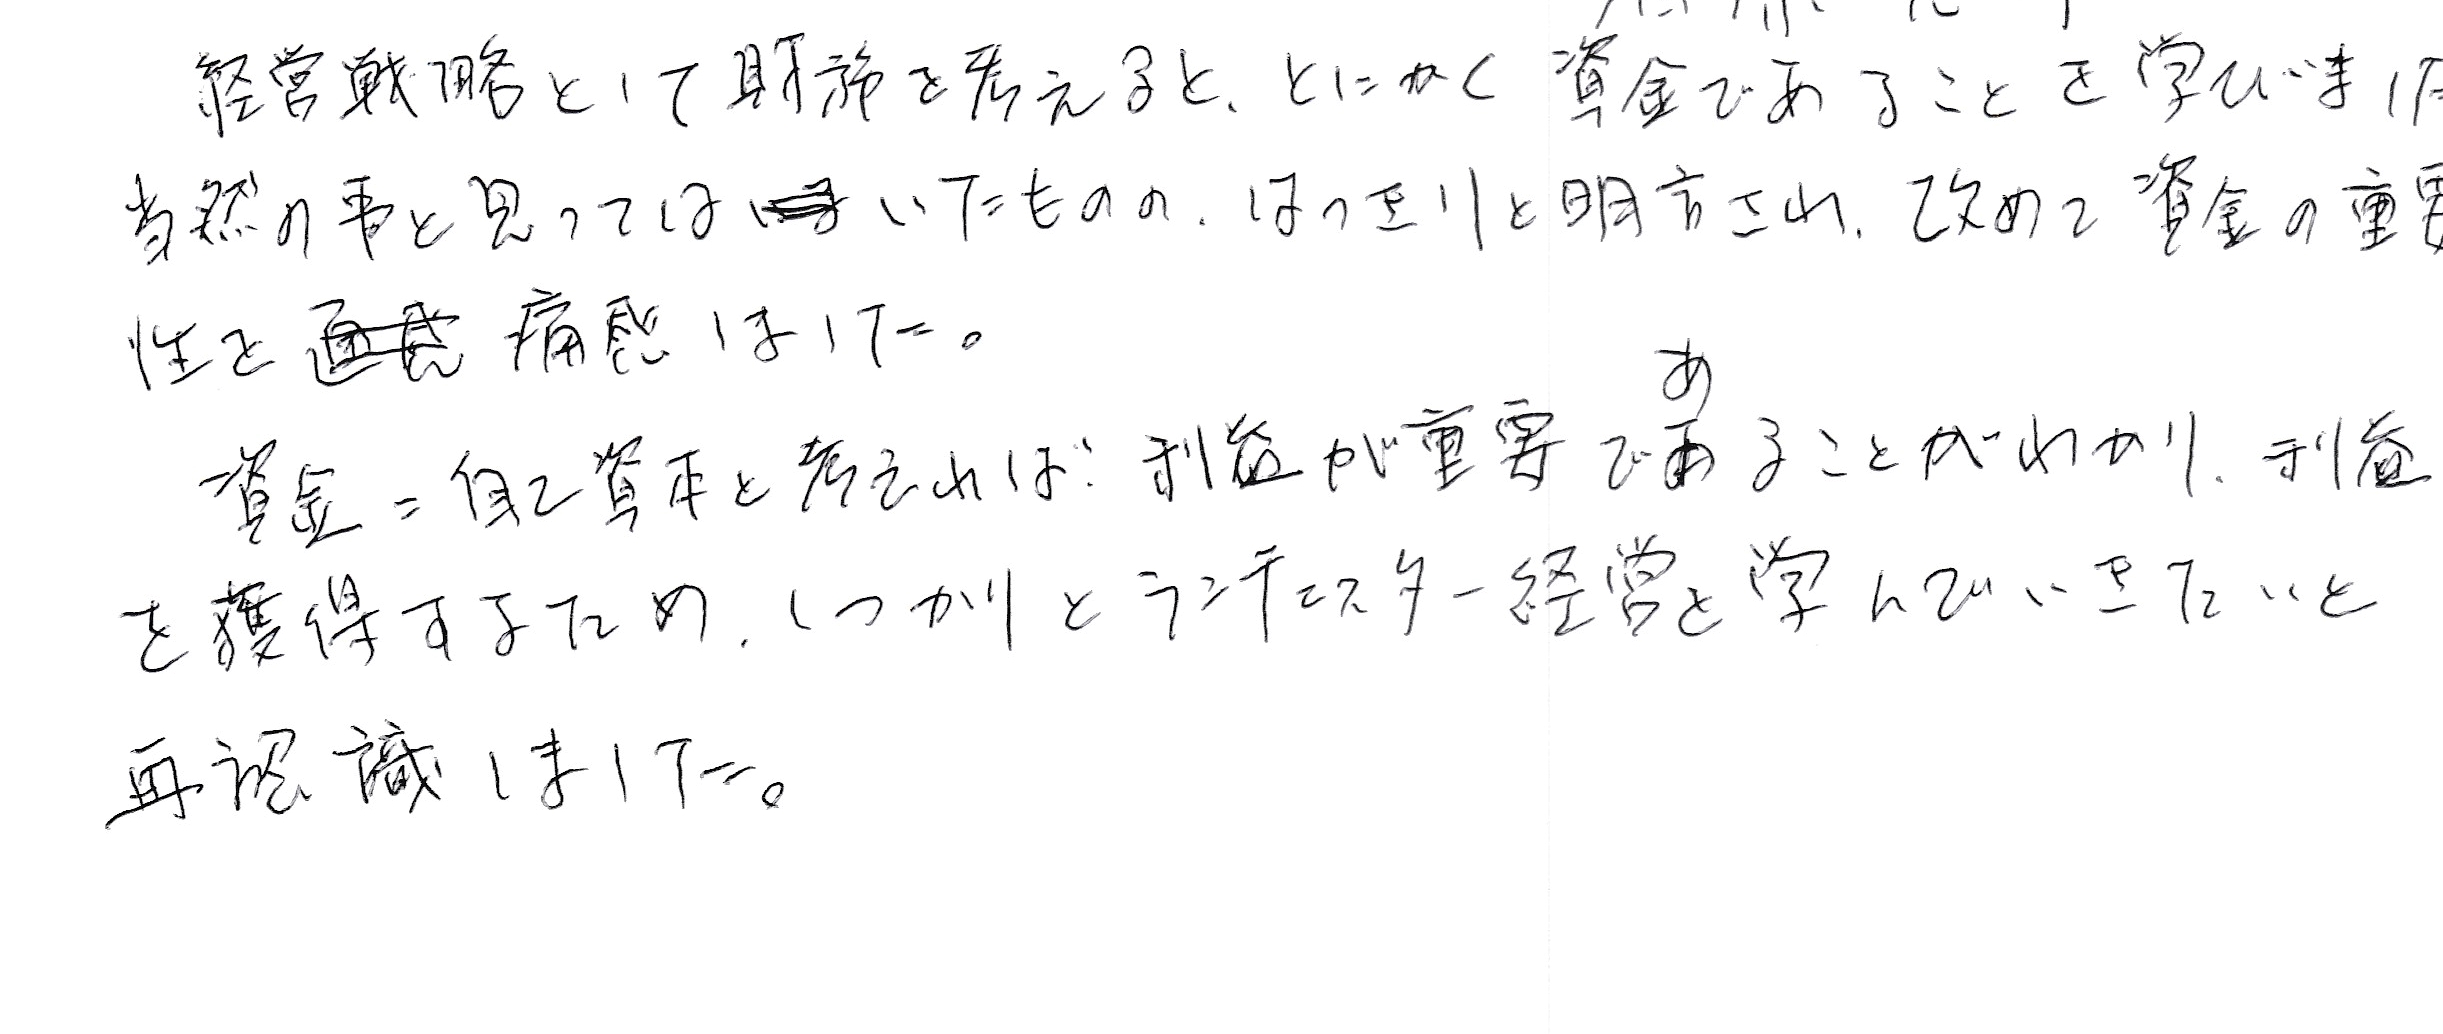 経営戦略として財務を考えると、とにかく資金であることを学びました
当然の事と思ってはいたものの、はっきりと明言され、改めて資金の重要
性を痛感しました。
資金＝自己資本と考えれば、利益が重要であることがわかり、利益
を獲得するため、しっかりとランチェスター経営を学んでいきたいと
再認識しました。